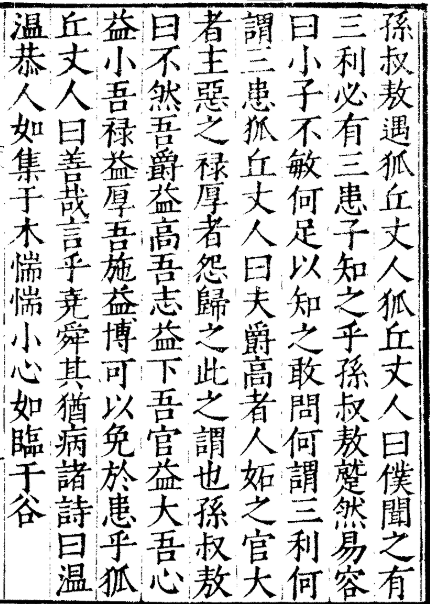 孫叔敖遇狐丘丈人狐丘丈人曰僕聞之有
三利必有三患子知之乎孫叔敖蹵然易容
曰小子不敏何足以知之敢問何謂三利何
謂三患狐丘丈人曰夫爵高者人妬之官大
者主惡之祿厚者怨歸之此之謂也孫叔敖
曰不然吾爵益高吾志益下吾官益大吾心
益小吾祿益厚吾施益博可以免於患乎狐
丘丈人曰善哉言乎堯舜其猶病諸詩曰溫
溫恭人如集于木惴惴小心如臨于谷